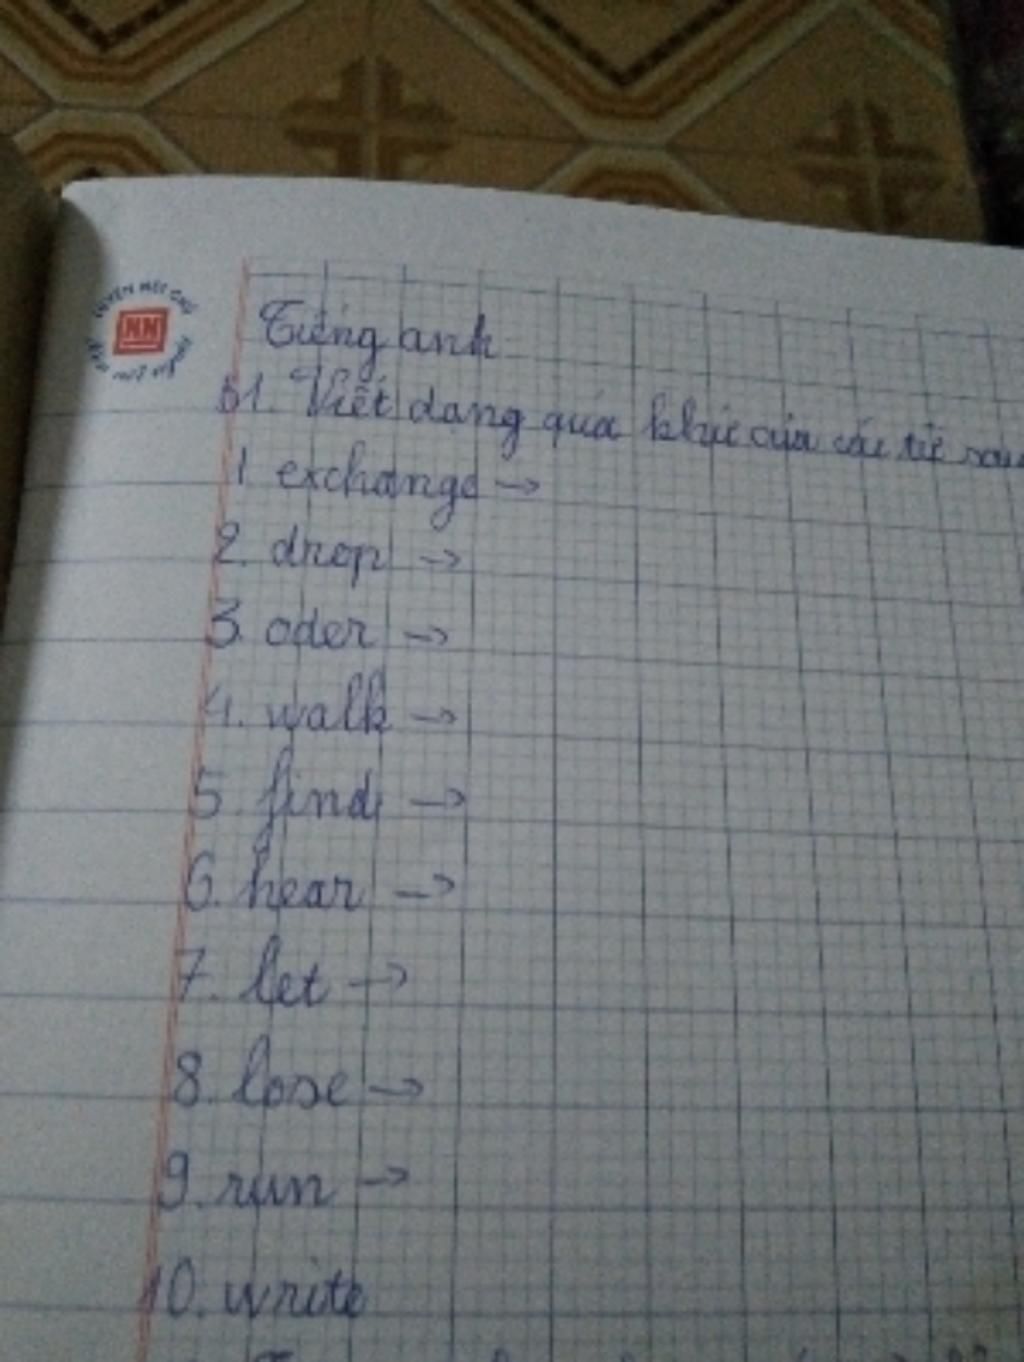 Tiếng anh
B1. Viết dạng quá khứ của các từ sau
1 exchange →
2. drop →
3. oder →
4. walk →
5. find →
6. hear →
7. let →
8. lose →
9. run →
10. write
NN